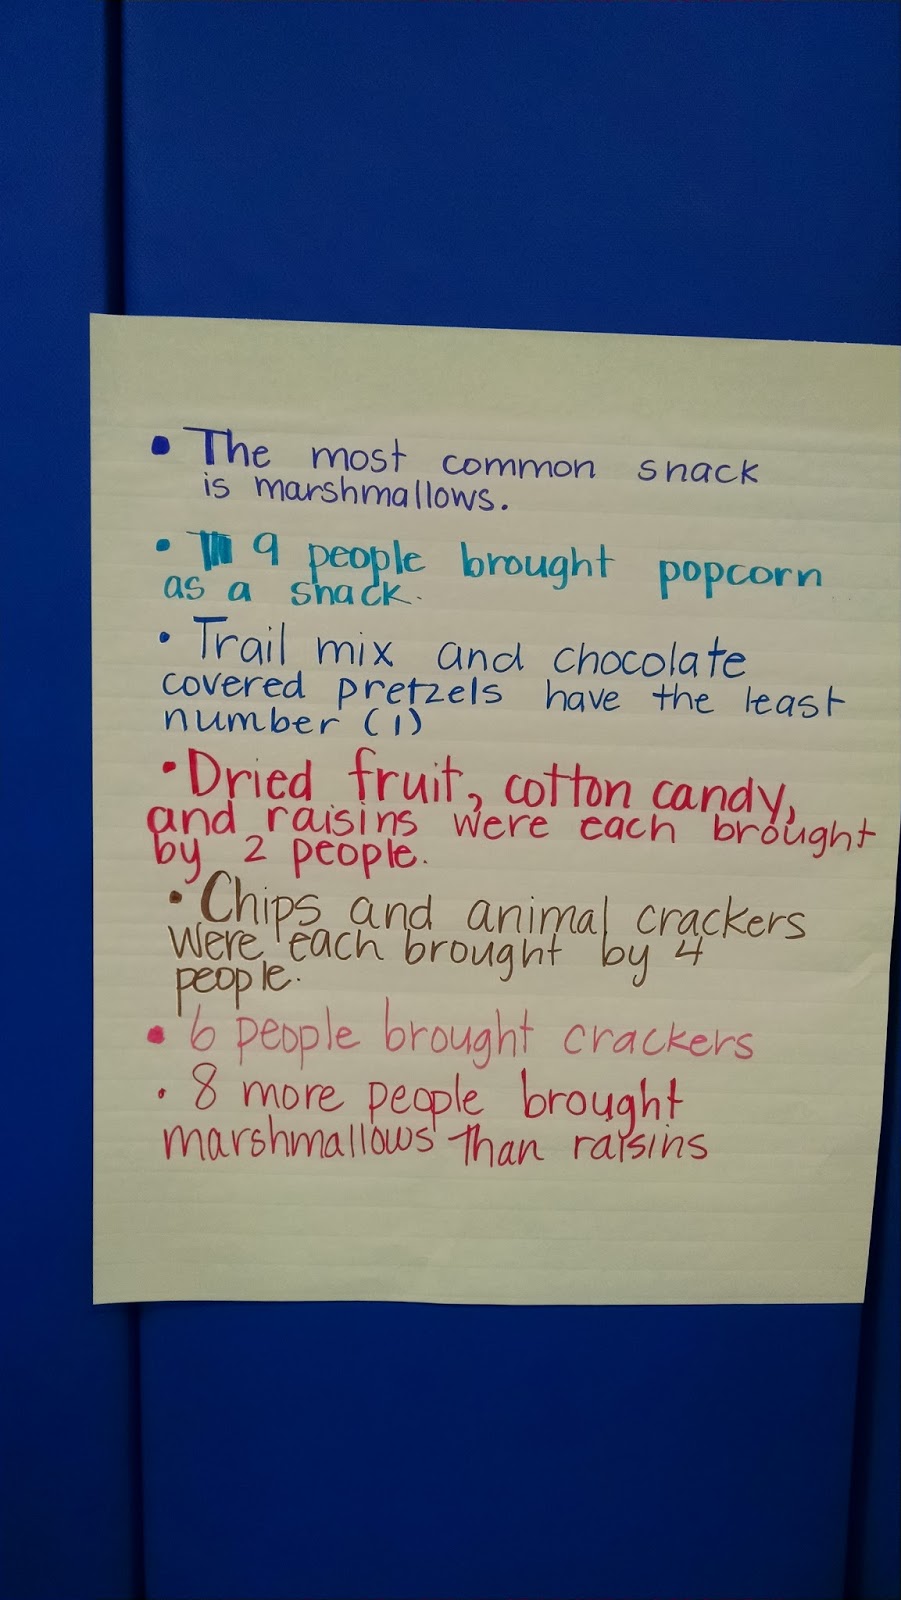 • The most common snack
is marshmallows.
• 9 people brought popcorn
as a snack.
• Trail mix and chocolate
covered pretzels have the least
number (1)
• Dried fruit, cotton candy,
and raisins were each brought
by 2 people.
• Chips and animal crackers
were each brought by 4
people.
• 6 people brought crackers
• 8 more people brought
marshmallows than raisins